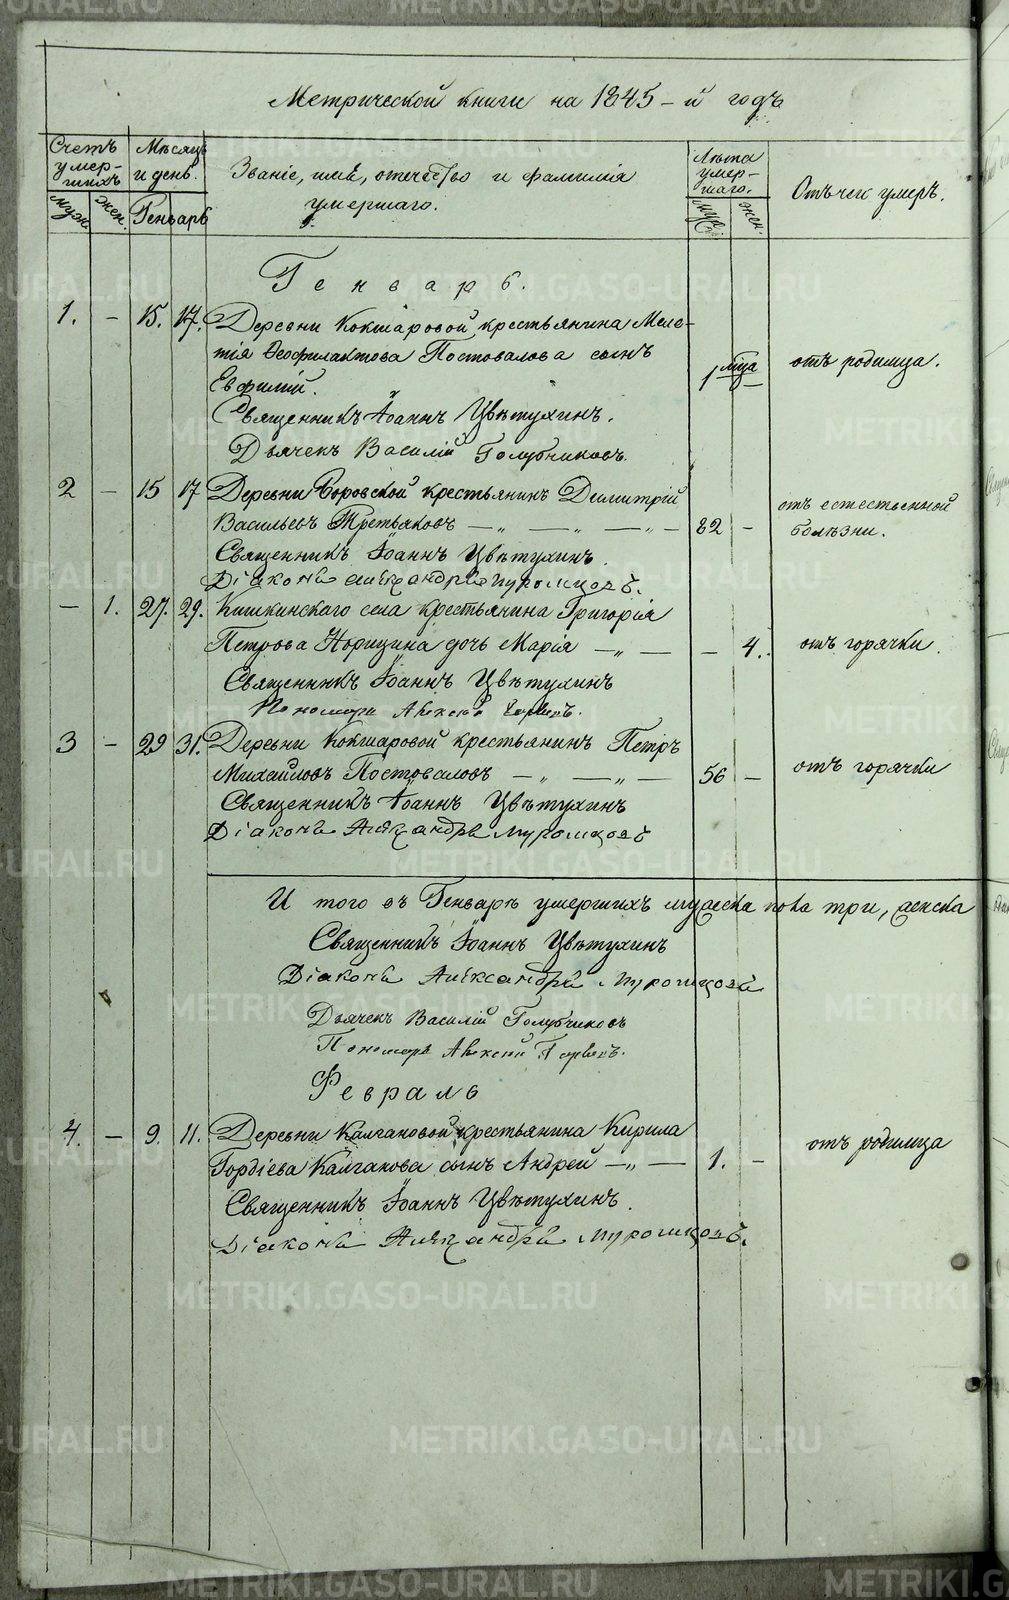 Метрической книги на 1845-й годъ
Счетъ умер-шихъ
Мѣсяцъ и день.
Званіе, имя, отечество и фамилія умершаго.
Лѣта умер-шаго.
Отъ чего умеръ.
муж. жен. Генварь муж. жен.
Генварь.
1. – 15. 17. Деревни Кокшаровой крестьянина Меле-
тія Ѳеофилактова Постовалова сынъ 1 мца отъ родимца.
Евфимій.
Священникъ Іоаннъ Цвѣтухинъ.
Дьячекъ Василій Голубчиковъ.
2 – 15 17 Деревни Боровской крестьянинъ Димитрій отъ естественной
Васильевъ Третьяковъ – „ – – „ – 82 – болѣзни.
Священникъ Іоаннъ Цвѣтухинъ.
Діаконъ Александръ Муромцовъ.
– 1. 27. 29. Кишкинскаго села крестьянина Григорія
Петрова Норицина дочь Марія – „ – – 4. отъ горячки.
Священникъ Іоаннъ Цвѣтухинъ
Пономарь Алексѣй
3 – 29 31. Деревни Кокшаровой крестьянинъ Петръ
Михайловъ Постоваловъ – „ – – „ – 56 – отъ горячки
Священникъ Іоаннъ Цвѣтухинъ
Діаконъ Александръ Муромцовъ
И того въ Генварѣ умершихъ мужеска пола три, женска
Священникъ Іоаннъ Цвѣтухинъ
Діаконъ Александръ Муромцовъ
Дьячекъ Василій Голубчиковъ
Пономарь Алексѣй
Февраль
4. – 9. 11. Деревни Калгановой крестьянина Кирила отъ родимца
Гордіева Калганова сынъ Андрей – „ – 1. –
Священникъ Іоаннъ Цвѣтухинъ.
Діаконъ Александръ Муромцовъ.
METRIKI.GASO-URAL.RU